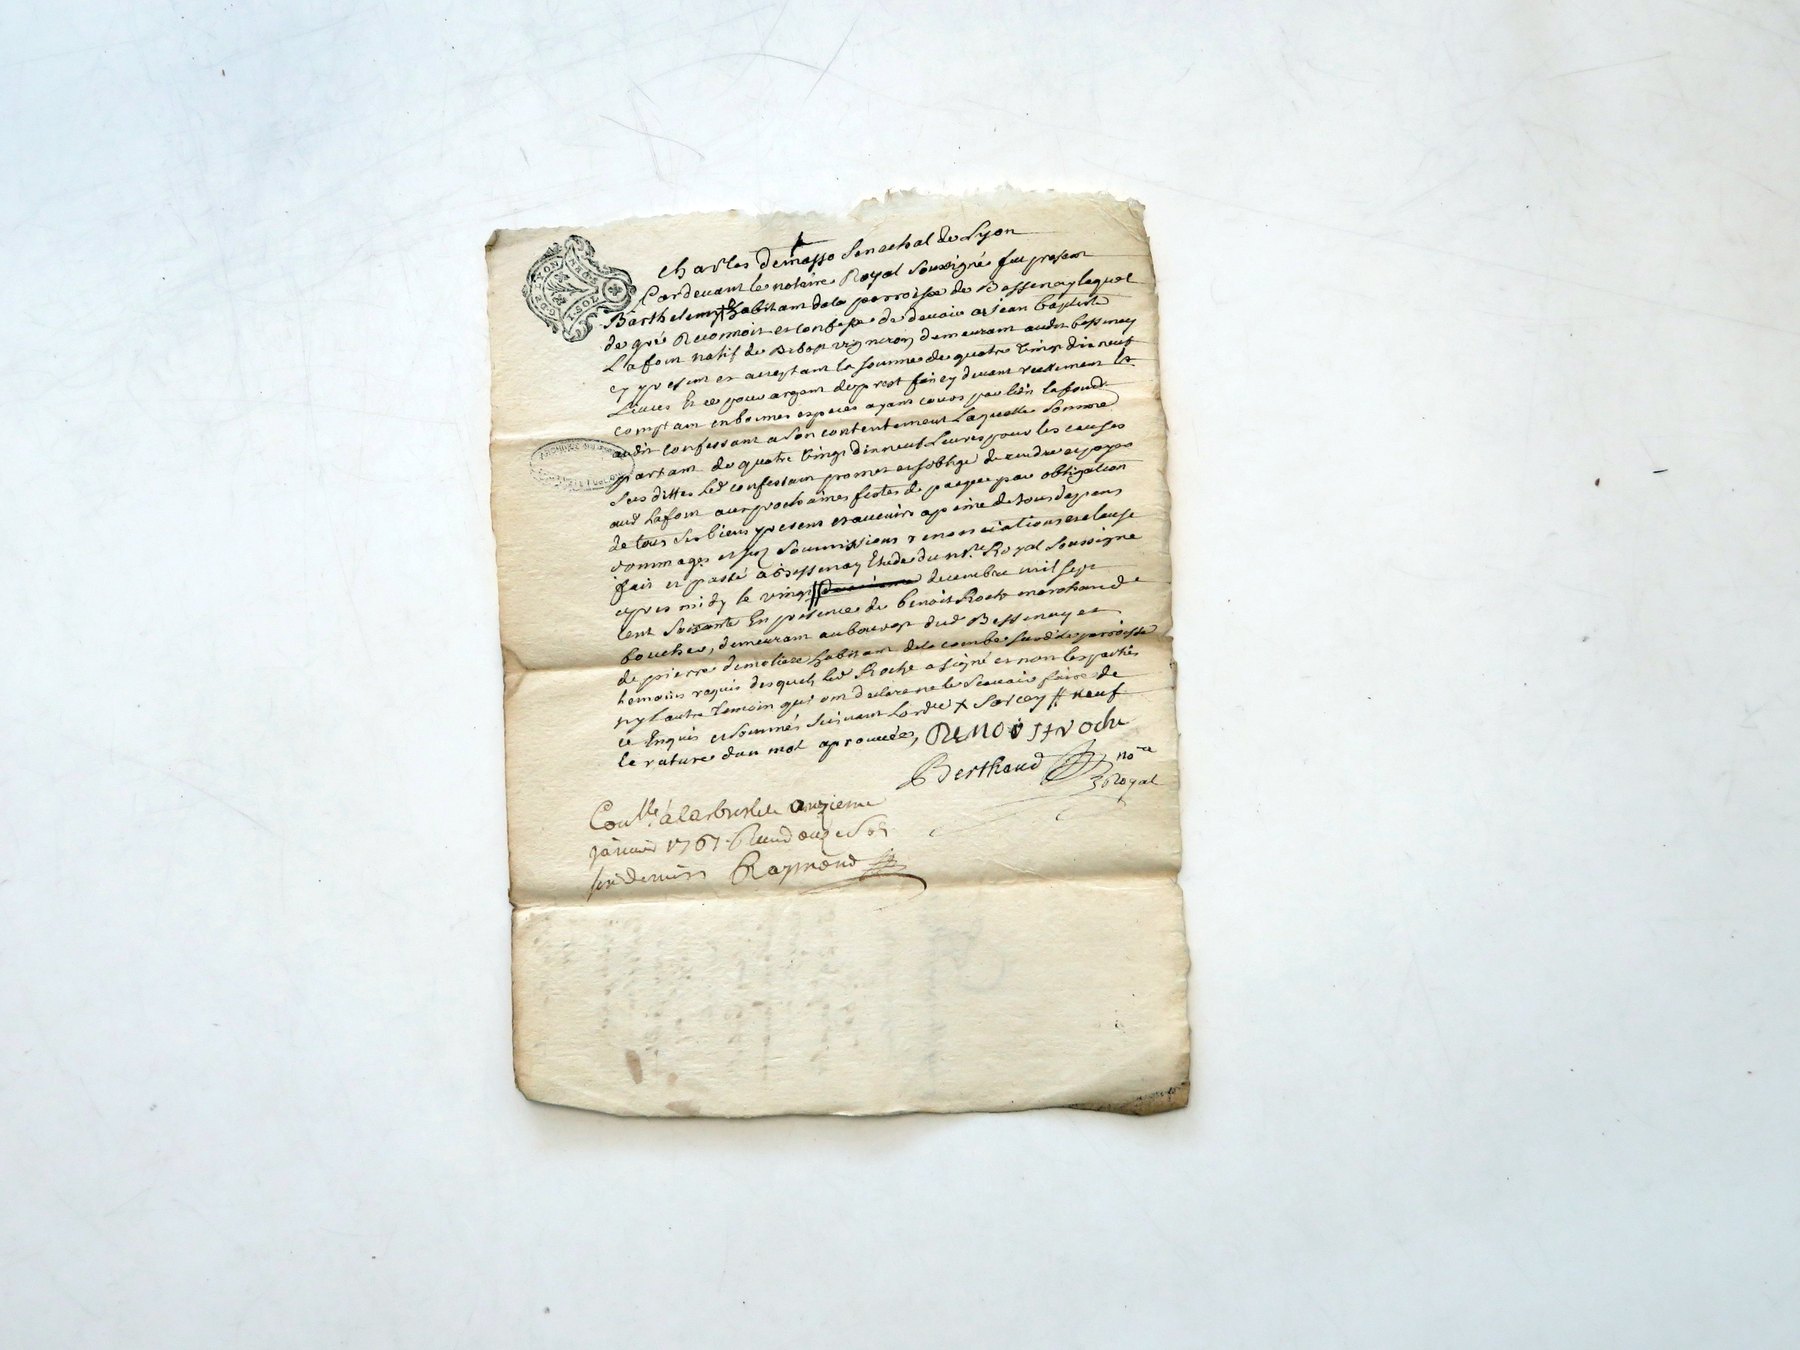 Charles demasso Senechal de Lyon
Pardevant le notaire Royal soussigné fut présent
Barthelemy + habitant dela parroisse de Bessenay lequel
de gré Reconnoit et confesse de devoir a Jean baptiste
Lafont natif de Bibost vigneron demeurant audit bessenay
cy present et acceptant la somme de quatre vingt dix neuf
Livres Et ce pour argent de prest fait cy devant reellement
comptant en bonnes especes ayant cours par led lafond
audit confessant a son contentement Laquelle somme
partant de quatre vingt dix neuf Livres pour les causes
susdittes led confessant promet et soblige de rendre et payer
aud Lafont aux prochaines festes de paque par obligation
de tous ses biens present et avenirs a peine de tous depens
dommages et soumissions renonciations et clause
fait et passé a Bessenay Etude du Royal soussigné
apres midy le vingt decembre mil sept
cent soixante En présence de benoit Roche marchand
boucher, demeurant au bourg dud Bessenay et
de pierre demoliere habitant dela combe sur lad parroisse
temoins requis desquels led Roche a signé et non les parties
ny Lautre temoin qui ont declare ne le scavoir faire de
ce Enquis et sommés suivant Lord + Sarcey // neuf
le rature dun mot aprouvées, BENOIST Roche
Berthaud no^re
Royal
Con^lle à larbresle onzieme
janvier 1761 Reçu douze sols
six deniers Raymond